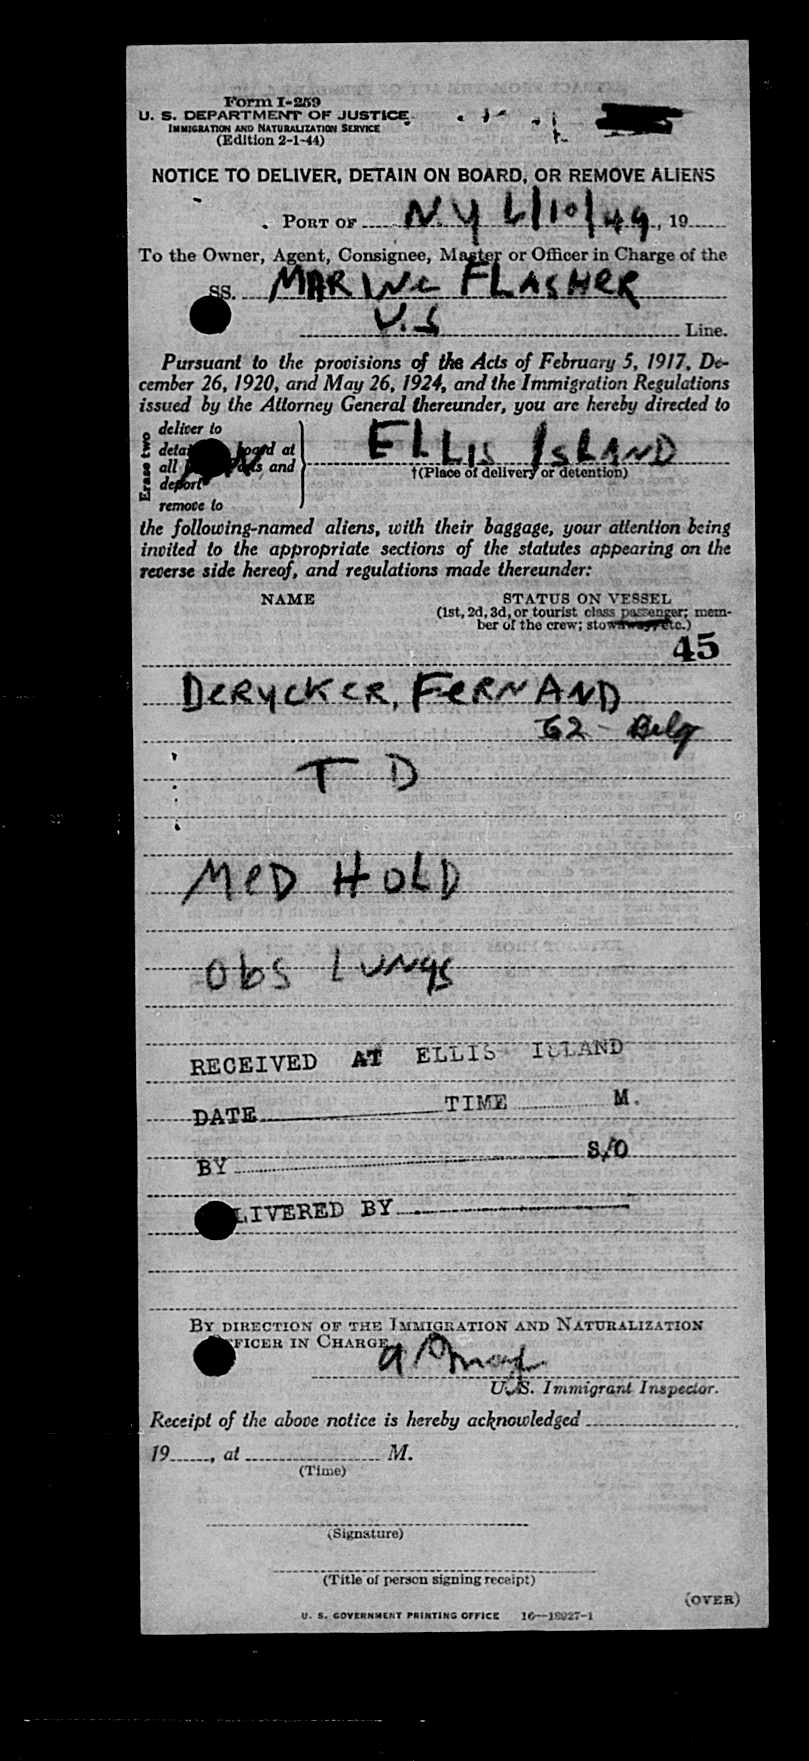 Form I-259
U. S. DEPARTMENT OF JUSTICE
IMMIGRATION AND NATURALIZATION SERVICE
(Edition 2-1-44)
NOTICE TO DELIVER, DETAIN ON BOARD, OR REMOVE ALIENS
PORT OF N.Y 6/10/49, 19
To the Owner, Agent, Consignee, Master or Officer in Charge of the
SS. MARINE FLASHER
U.S Line.
Pursuant to the provisions of the Acts of February 5, 1917, De-
cember 26, 1920, and May 26, 1924, and the Immigration Regulations
issued by the Attorney General thereunder, you are hereby directed to
Erase two
deliver to
board at
all and
deport
remove to
ELLIS ISLAND
†(Place of delivery or detention)
the following-named aliens, with their baggage, your attention being
invited to the appropriate sections of the statutes appearing on the
reverse side hereof, and regulations made thereunder:
NAME STATUS ON VESSEL
(1st, 2d, 3d, or tourist class passenger; mem-
ber of the crew; stowaway, etc.)
45
DERYCKER, FERNAND
62 - Belg
T D
MED HOLD
Obs LUNgS
RECEIVED AT ELLIS ISLAND
DATE TIME M.
BY S/O
LIVERED BY
BY DIRECTION OF THE IMMIGRATION AND NATURALIZATION
FFICER IN CHARGE
U.S. Immigrant Inspector.
Receipt of the above notice is hereby acknowledged
19, at M.
(Time)
(Signature)
(Title of person signing receipt)
(OVER)
U. S. GOVERNMENT PRINTING OFFICE 16—18927-1